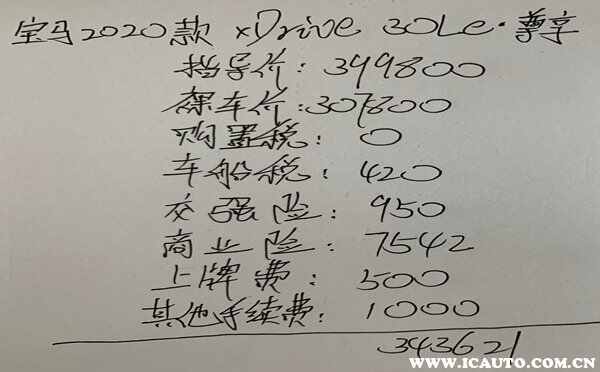 宝马2020款 xDrive 30Le·尊享
指导价: 399800
裸车价: 307800
购置税: 0
车船税: 420
交强险: 950
商业险: 7542
上牌费: 500
其他手续费: 1000
343621
WWW.ICAUTO.COM.CN